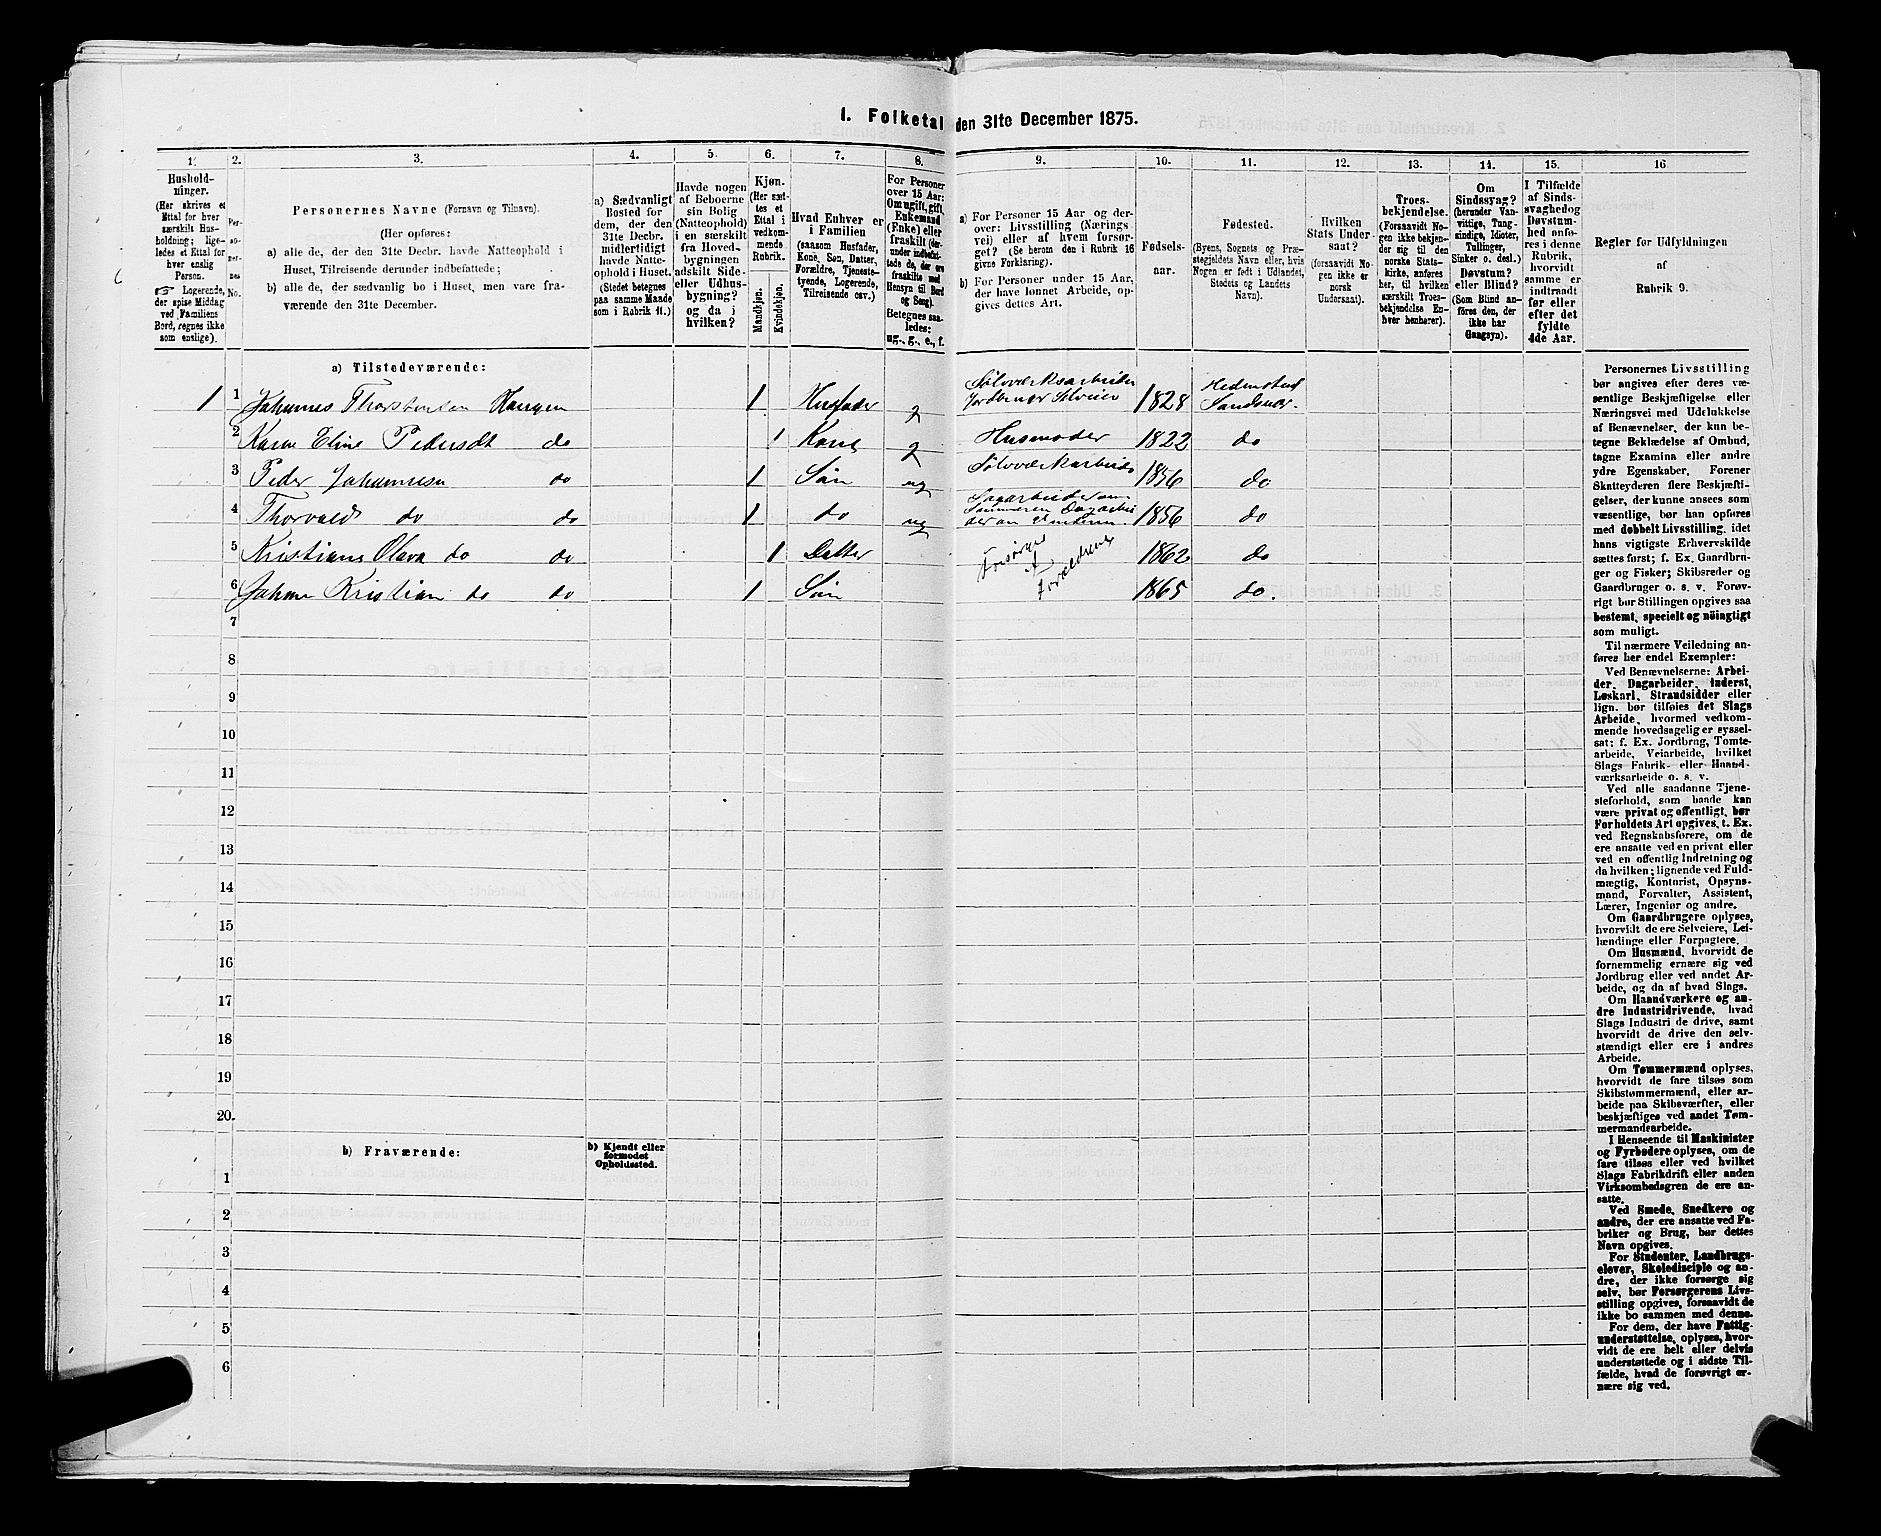 I. Folketal den 31te December 1875.
1. 2. 3. 4. 5. 6. 7. 8. 9. 10. 11. 12. 13. 14. 15. 16
Hushold-
ninger.
(Her skrives et
Ettal for hver
særskilt Hus-
holdning; lige-
ledes et Ettal for
hver enslig
Person.
☞ Logerende,
der spise Middag
ved Familiens
Bord, regnes ikke
som enslige).
Per-
so-
ner-
nes
No.
Personernes Navne (Fornavn og Tilnavn).
(Her opføres:
a) alle de, der den 31te Decbr. havde Natteophold i
Huset, Tilreisende derunder indbefattede;
b) alle de, der sædvanlig bo i Huset, men vare fra-
værende den 31te December.
a) Sædvanligt
Bosted for
dem, der den
31te Decbr.
midlertidigt
havde Natte-
ophold i Huset.
(Stedet betegnes
paa samme Maade
som i Rubrik 11.)
Havde nogen
af Beboerne
sin Bolig
(Natteophold)
i en særskilt
fra Hoved-
bygningen
adskilt Side-
eller Udhus-
bygning?
og da i
hvilken?
Kjøn.
(Her sæt-
tes et
Ettal i
vedkom-
mende
Rubrik.
Mandkjøn.
Kvindekjøn.
Hvad Enhver er
i Familien
(saasom Husfader,
Kone, Søn, Datter,
Forældre, Tjeneste-
tyende, Logerende,
Tilreisende osv.)
For Personer
over 15 Aar:
Om ugift, gift,
Enkemand
(Enke) eller
fraskilt (der-
under indbefat-
tede de, der ere
fraskilte med
Hensyn til Bord
og Seng).
Betegnes saa-
ledes:
ug., g., e., f.
a) For Personer 15 Aar og der-
over: Livsstilling (Nærings-
vei) eller af hvem forsør-
get? (Se herom den i Rubrik 16
givne Forklaring).
b) For Personer under 15 Aar,
der have lønnet Arbeide, op-
gives dettes Art.
Fødsels-
aar.
Fødested.
(Byens, Sognets og Præ-
stegjeldets Navn eller, hvis
Nogen er født i Udlandet,
Stedets og Landets
Navn).
Hvilken
Stats Under
saat?
(forsaavidt No-
gen ikke er
norsk
Undersaat).
Troes-
bekjendelse.
(Forsaavidt No-
gen ikke bekjen-
der sig til den
norske Stats-
kirke, anføres
her, til hvilken
særskilt Troes-
bekjendelse En-
hver henhører).
Om
Sindssyag?
(herunder Van-
vittige, Tung-
sindige, Idioter,
Tullinger,
Sinker o. desl.)
Døvstum?
eller Blind?
(Som Blind an-
føres den, der
ikke har
Gangsyn).
I Tilfælde
af Sinds-
svaghed og
Døvstum-
hed anfø-
res i denne
Rubrik,
hvorvidt
samme er
indtraadt
før eller
efter det
fyldte
4de Aar.
Regler for Udfyldningen
af
Rubrik 9.
a) Tilstedeværende:
1 1 Johannes Thorstensen Haugen 1 Husfader g Sølvværksarbeider Jordbruger Selveier 1828 Hedenstad Sandsvær.
2 Karen Eline Pedersdt do 1 Kone g Husmoder 1822 do
3 Peder Johannesen do 1 Søn ug Sølvværksarbeider 1856 do
4 Thorvald do do 1 do ug Sagarbeider om Sommeren Dagarbeider om Vinteren. 1856 do
5 Kristiane Olava do do 1 Datter Forsørges af Forældrene 1862 do
6 Johan Kristian do do 1 Søn 1865 do.
7
8
9
10
11
12
13
14
15
16
17
18
19
20.
b) Fraværende:
b) Kjendt eller
formodet
Opholdssted.
1
2
3
4
5
6
Personernes Livsstilling
bør angives efter deres væ-
sentlige Beskjæftigelse eller
Næringsvei med Udelukkelse
af Benævnelser, der kun be-
tegne Beklædelse af Ombud,
tagne Examina eller andre
ydre Egenskaber. Forener
Skatteyderen flere Beskjæfti-
gelser, der kunne ansees som
væsentlige, bør han opføres
med dobbelt Livsstilling, idet
hans vigtigste Erhvervskilde
sættes først; f. Ex. Gaardbru-
ger og Fisker; Skibsreder og
Gaardbruger o. s. v. Forøv-
rigt bør Stillingen opgives saa
bestemt, specielt og nöiagtigt
som muligt.
Til nærmere Veiledning an-
føres her endel Exempler:
Ved Benævnelserne: Arbei-
der, Dagarbeider, Inderst,
Løskarl, Strandsidder eller
lign. bør tilføies det Slags
Arbeide, hvormed vedkom-
mende hovedsagelig er syssel-
sat; f. Ex. Jordbrug, Tomte-
arbeide, Veiarbeide, hvilket
Slags Fabrik- eller Haand-
værksarbeide o. s. v.
Ved alle saadanne Tjene-
steforhold, som baade kan
være privat og offentligt, bør
Forholdets Art opgives, t. Ex.
ved Regnskabsførere, om de
ere ansatte ved en privat eller
ved en offentlig Indretning og
da hvilken; lignende ved Fuld-
mægtig, Kontorist, Opsyns-
mand, Forvalter, Assistent,
Lærer, Ingeniør og andre.
Om Gaardbrugere oplyses,
hvorvidt de ere Selveiere, Lei-
lændinge eller Forpagtere.
Om Husmænd, hvorvidt de
fornemmelig ernære sig ved
Jordbrug eller ved andet Ar-
beide, og da af hvad Slags.
Om Haandværkere og an-
dre Industridrivende, hvad
Slags Industri de drive, samt
hvorvidt de drive den selv-
stændigt eller ere i andres
Arbeide.
Om Tømmermænd oplyses,
hvorvidt de fare tilsøs som
Skibstømmermænd, eller ar-
beide paa Skibsværfter, eller
beskjæftiges ved andet Tøm-
mermandsarbeide.
I Henseende til Maskinister
og Fyrbødere oplyses, om de
fare tilsøs eller ved hvilket
Slags Fabrikdrift eller anden
Virksomhedsgren de ere an-
satte.
Ved Smede, Snedkere og
andre, der ere ansatte ved Fa-
briker og Brug, bør dettes
Navn opgives.
For Studenter, Landbrugs-
elever, Skoledisciple og an-
dre, der ikke forsørge sig
selv, bør Forsørgerens Livs-
stilling opgives, forsaavidt de
ikke bo sammen med denne.
For dem, der have Fattig-
understøttelse, oplyses, hvor-
vidt de ere helt eller delvis
understøttede og i sidste Til-
fælde, hvad de forøvrigt er-
nære sig ved.